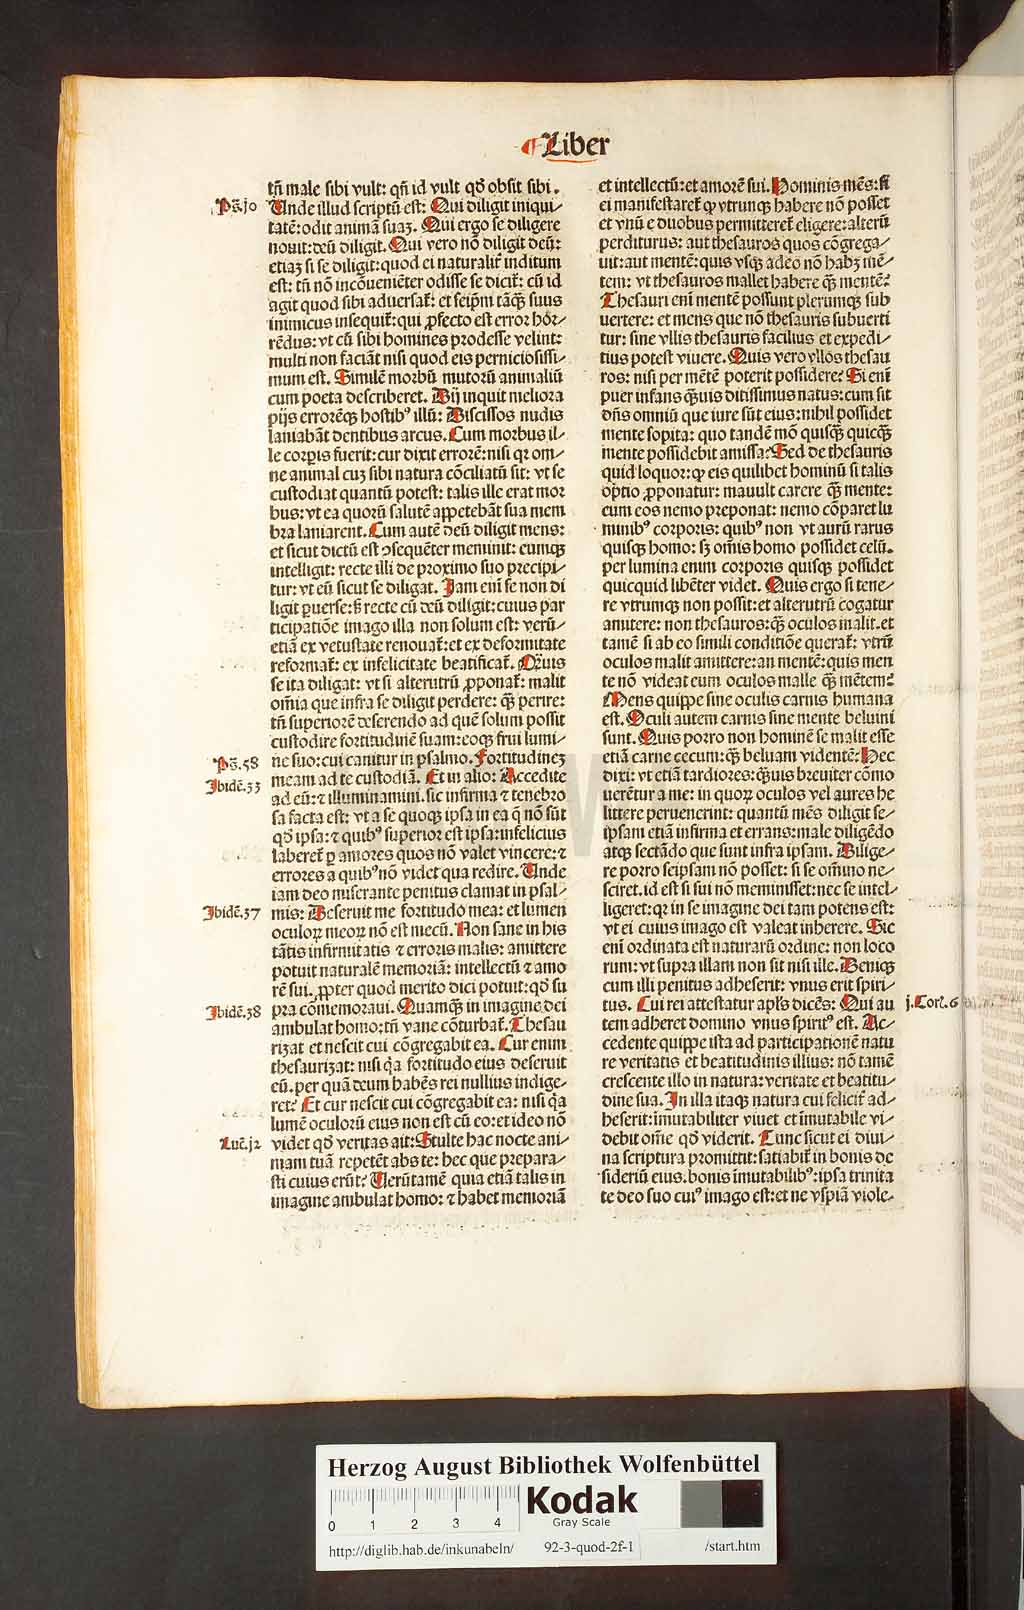 ¶Liber
tñ male sibi vult: qñ id vult qď obsit sibi.
Ps̃.jo
Unde illud scriptũ est: Qui diligit iniqui⸗
tatẽ: odit animã suaȝ. Qui ergo se diligere
nouit: deũ diligit. Qui vero nõ diligit deũ:
etiaȝ si se diligit: quod ei naturalit̃ inditum
est: tñ nõ incõueniẽter odisse se dicit̃: cũ id
agit quod sibi aduersat̃: et seip̃m tãq̃ȝ suus
inimicus insequit̃: qui ꝓfecto est error hor⸗
rẽdus: vt cũ sibi homines prodesse velint:
multi non faciãt nisi quod eis perniciosissi⸗
mum est. Similẽ morbũ mutorũ animaliũ
cum poeta describeret. Dij inquit meliora
pijs erroremq̃ȝ hostibꝰ illũ: Discissos nudis
laniabãt dentibus artus. Cum morbus il⸗
le corꝑis fuerit: cur dixit errorẽ: nisi qꝛ om⸗
ne animal cuȝ sibi natura cõciliatũ sit: vt se
custodiat quantũ potest: talis ille erat mor
bus: vt ea quorũ salutẽ appetebãt sua mem
bra laniarent. Cum autẽ deũ diligit mens:
et sicut dictũ est ꝯsequẽter meminit: eumqȝ
intelligit: recte illi de proximo suo precipi⸗
tur: vt eũ sicut se diligat. Jam eni᷑ se non di
ligit ꝑuerse: sȝ recte cũ deũ diligit: cuius par
ticipatiõe imago illa non solum est: verũ⸗
etiã ex vetustate renouat̃: et ex deformitate
reformat̃: ex infelicitate beatificat̃. Q̃uis
se ita diligat: vt si alterutrũ ꝓponat̃: malit
om̃ia que infra se diligit perdere: q̃ȝ perire:
tñ superiorẽ deserendo ad quẽ solum possit
custodire fortitudinẽ suam: eoqȝ frui lumi⸗
Ps̃.58
ne suo: cui canitur in psalmo. Fortitudineȝ
Jbidẽ.33
meam ad te custodiã. Et in alio: Accedite
ad eũ: ⁊ illuminamini. sic infirma ⁊ tenebro
sa facta est: vt a se quoqȝ ipsa in ea q̃ nõ sũt
qď ipsa: ⁊ quibꝰ superior est ipsa: infelicius
laberet̃ ꝑ amores quos nõ valet vincere: ⁊
errores a quibꝰ nõ videt qua redire. Unde
iam deo miserante penitus clamat in psal⸗
Jbidẽ.37
mis: Deseruit me fortitudo mea: et lumen
oculoꝝ meoꝝ nõ est mecũ. Non sane in his
tãtis infirmitatis ⁊ erroris malis: amittere
potuit naturalẽ memoriã: intellectũ ⁊ amo
rẽ sui. ꝓpter quod merito dici potuit: qď su
Jbidẽ.38
pra cõmemoraui. Quamq̃ȝ in imagine dei
ambulat homo: tñ vane cõturbat̃. Thesau
rizat et nescit cui cõgregabit ea. Cur enim
thesaurizat: nisi q̃a fortitudo eius deseruit
eũ. per quã deum habẽs rei nullius indige⸗
ret? Et cur nescit cui cõgregabit ea: nisi q̃a
lumẽ oculorũ eius non est cũ eo: et ideo nõ
Luc̃.j2
videt qď veritas ait: Stulte hac nocte ani⸗
mam tuã repetẽt abs te: hec que prepara⸗
sti cuius erũt? Verũtamẽ quia etiã talis in
imagine ambulat homo: ⁊ habet memoriã
et intellectũ: et amorẽ sui. Hominis mẽs: si
ei manifestaret̃ ꝙ vtrunqȝ habere nõ posset
et vnũ e duobus permitteret̃ eligere: alterũ
perditurus: aut thesauros quos cõgrega⸗
uit: aut mentẽ: quis vsqȝ adeo nõ habȝ mẽ⸗
tem: vt thesauros mallet habere q̃ȝ mentẽ?
Thesauri eni᷑ mentẽ possunt plerumqȝ sub
uertere: et mens que nõ thesauris subuerti
tur: sine vllis thesauris facilius et expedi⸗
tius potest viuere. Quis vero vllos thesau
ros: nisi per mẽtẽ poterit possidere? Si eni᷑
puer infans q̃ȝuis ditissimus natus: cum sit
dñs omniũ que iure sũt eius: nihil possidet
mente sopita: quo tandẽ mõ quisq̃ȝ quicq̃ȝ
mente possidebit amissa? Sed de thesauris
quid loquor: ꝙ eis quilibet hominũ si talis
optio ꝓponatur: mauult carere q̃ȝ mente:
cum eos nemo preponat: nemo cõparet lu
minibꝰ corporis: quibꝰ non vt aurũ rarus
quisqȝ homo: sȝ om̃is homo possidet celũ.
per lumina enim corporis quisqȝ possidet
quicquid libẽter videt. Quis ergo si tene⸗
re vtrumqȝ non possit: et alterutrũ cogatur
amittere: non thesauros: q̃ȝ oculos malit. et
tamẽ si ab eo simili conditiõe querat̃: vtrũ
oculos malit amittere: an mentẽ: quis men
te nõ videat eum oculos malle q̃ȝ mẽtem?
Mens quippe sine oculis carnis humana
est. Oculi autem carnis sine mente beluini
sunt. Quis porro non hominẽ se malit esse
etiã carne cecum: q̃ȝ beluam videntẽ: Hec
dixi: vt etiã tardiores: q̃ȝuis breuiter cõmo
uerẽtur a me: in quoꝝ oculos vel aures he
littere peruenerint: quantũ mẽs diligit se⸗
ipsam etiã infirma et errans: male diligẽdo
atqȝ sectãdo que sunt infra ipsam. Dilige⸗
re porro seipsam nõ posset: si se om̃ino ne⸗
sciret. id est si sui nõ meminisset: nec se intel⸗
ligeret: qꝛ in se imagine dei tam potens est:
vt ei cuius imago est valeat inherere. Sic
eni᷑ ordinata est naturarũ ordine: non loco
rum: vt supra illam non sit nisi ille. Deniqȝ
cum illi penitus adheserit: vnus erit spiri⸗
j.Cor̃.6
tus. Cui rei attestatur apl̃s dicẽs: Qui au
tem adheret domino vnus spiritꝰ est. Ac⸗
cedente quippe ista ad participationẽ natu
re veritatis et beatitudinis illius: nõ tamẽ
crescente illo in natura: veritate et beatitu⸗
dine sua. In illa itaqȝ natura cui felicit̃ ad⸗
heserit: im̃utabiliter viuet et im̃utabile vi⸗
debit om̃e qď viderit. Tunc sicut ei diui⸗
na scriptura promittit: satiabit̃ in bonis de
siderium eius. bonis im̃utabilibꝰ: ipsa trinita
te deo suo cuiꝰ imago est: et ne vspiã viole⸗
Herzog August Bibliothek Wolfenbüttel
0 1 2 3 4
Kodak
Gray Scale
http://diglib.hab.de/inkunabeln/ 92-3-quod-2f-1 /start.htm